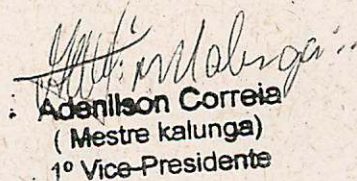 Adenilson Correia
( Mestre kalunga)
1º Vice-Presidente